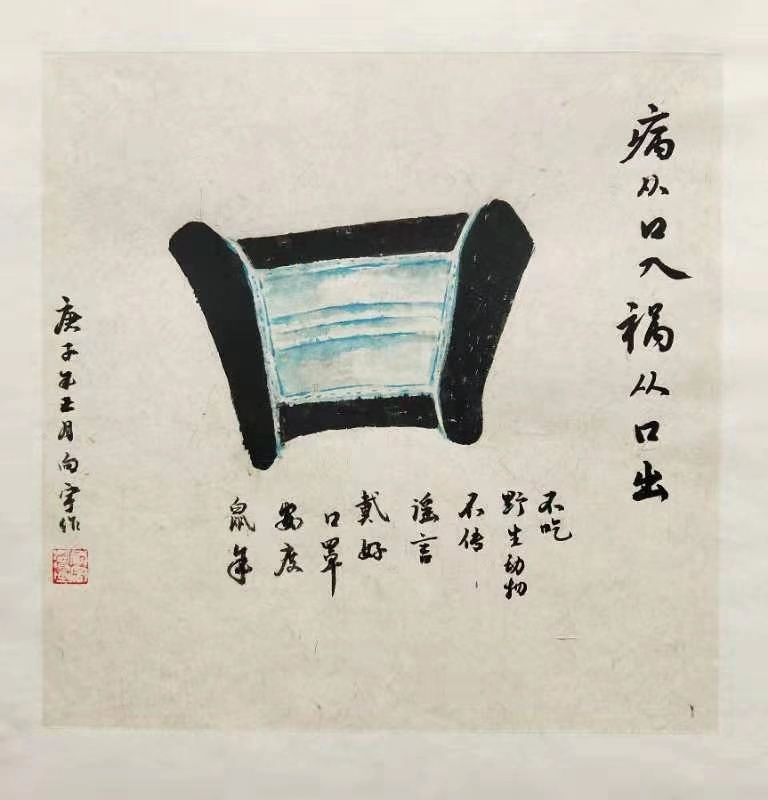 病从口入祸从口出
不吃
野生动物
不传
谣言
戴好
口罩
安度
鼠年
庚子年正月向宇作